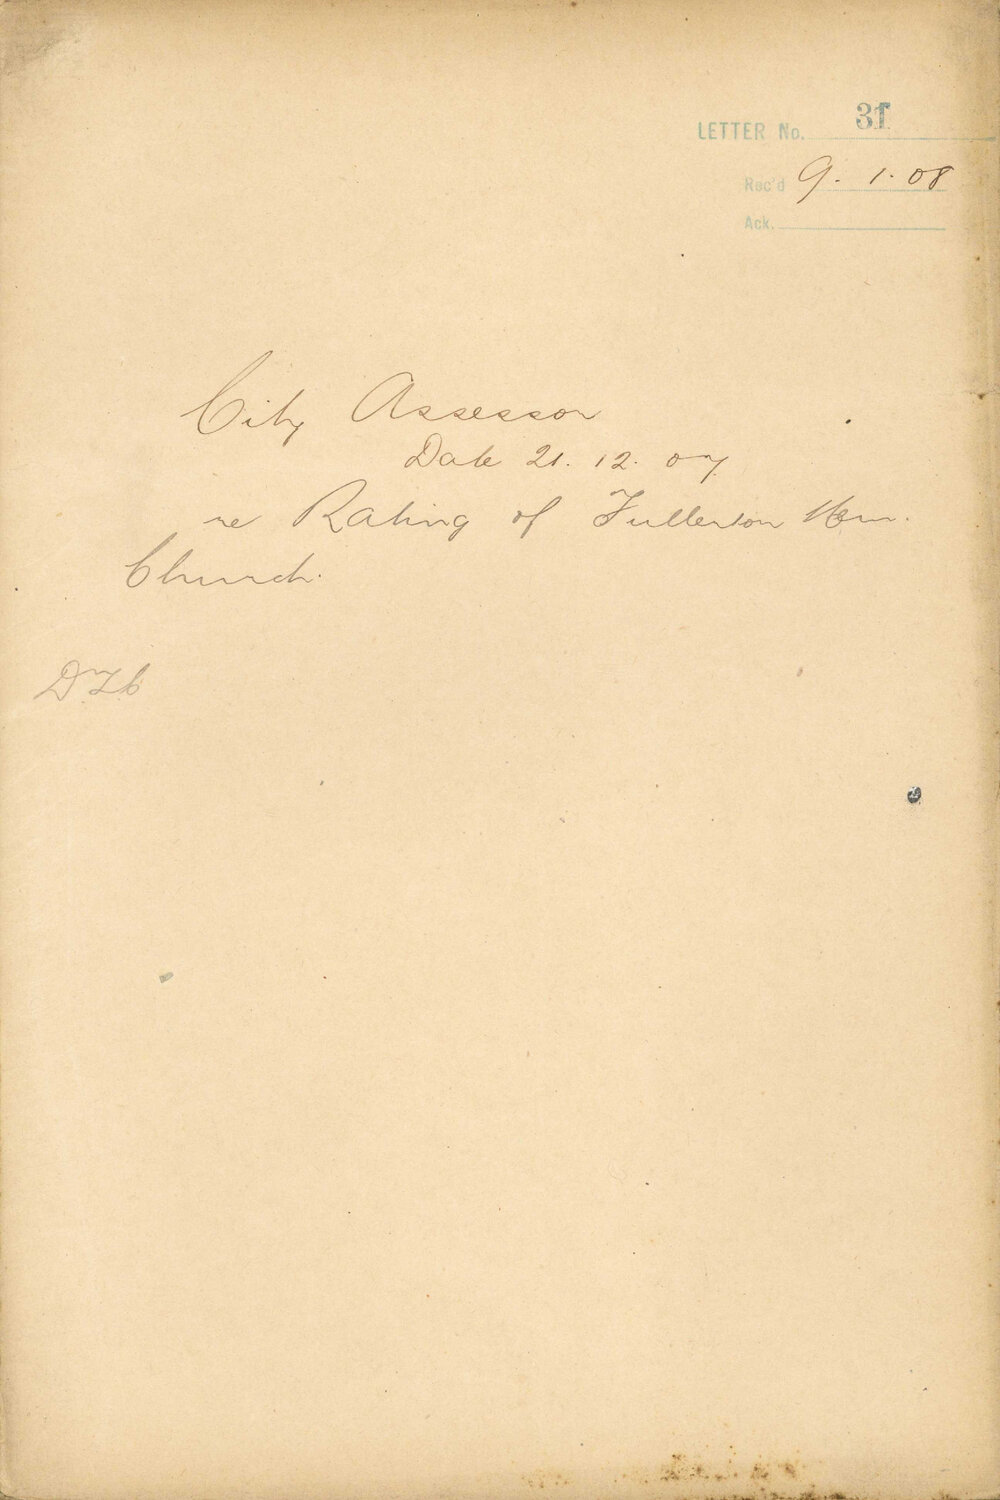 LETTER No. 31
Rec'd 9. 1. 08
Ack.
City Assessor
Date 21. 12. 07
re Rating of Fullerton Mem.
Church.